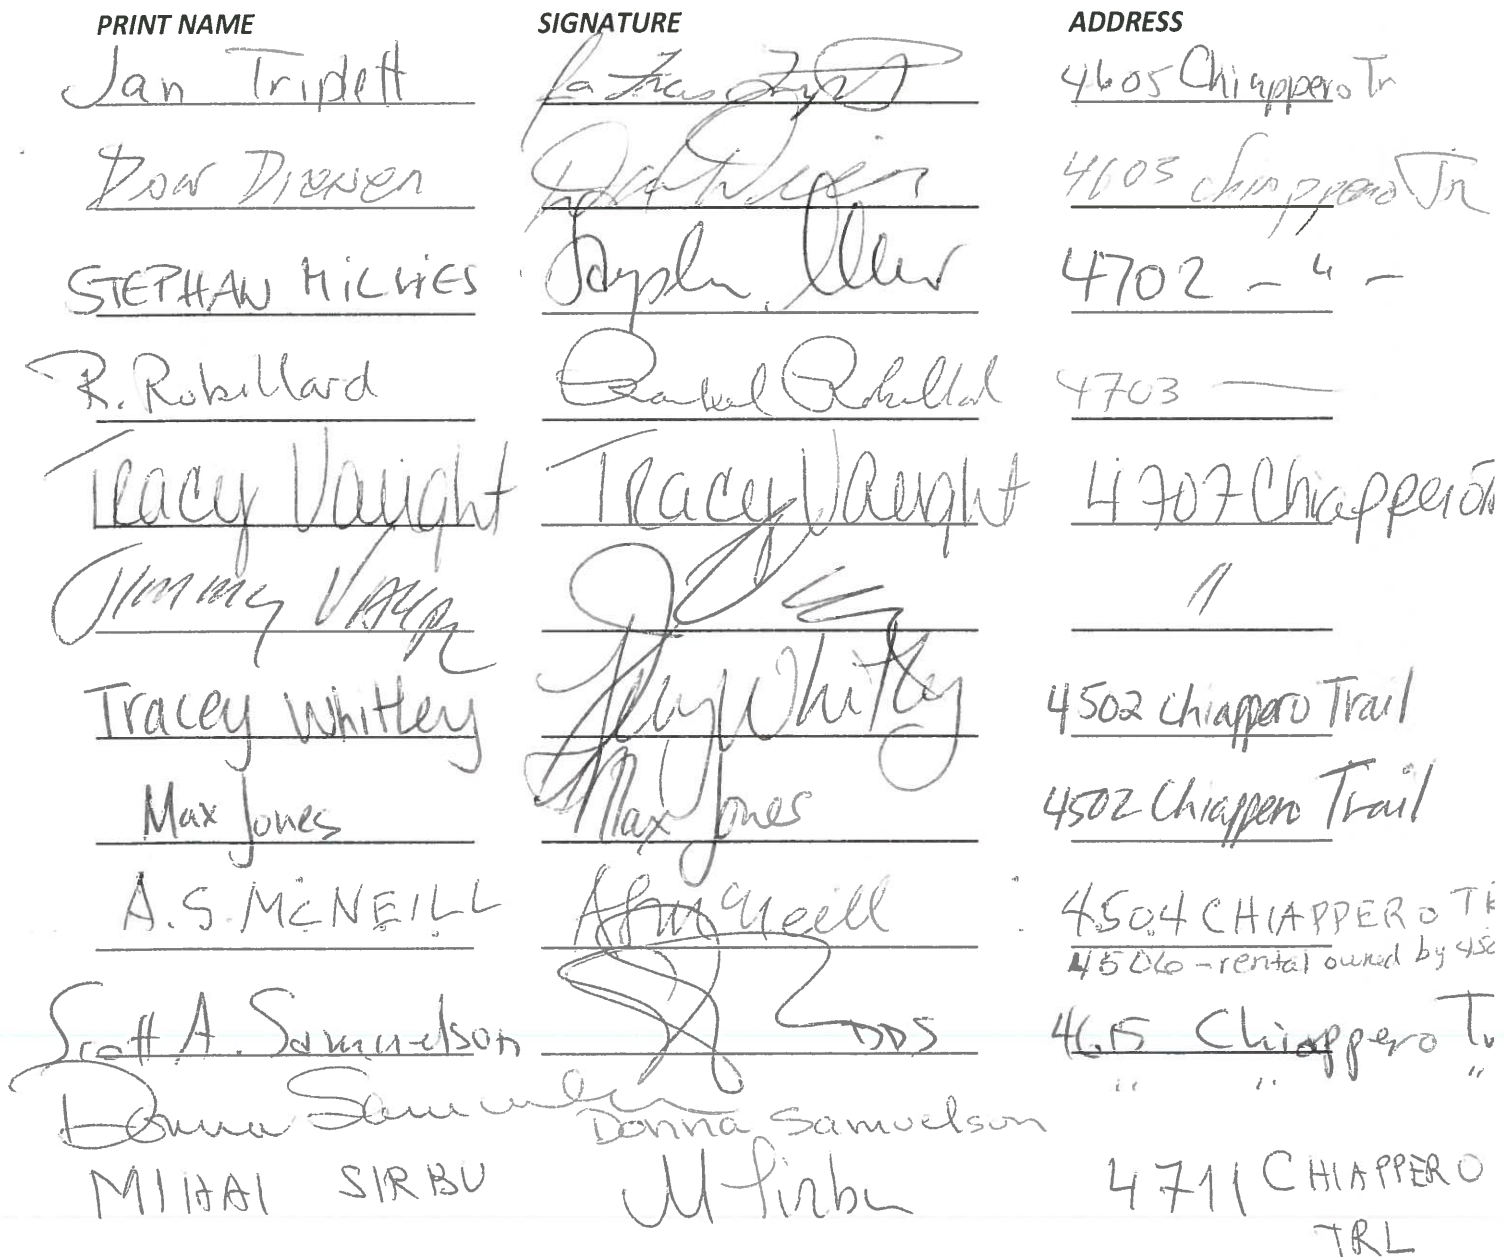 PRINT NAME SIGNATURE ADDRESS
Jan Triplett 4605 Chiappero Tr
Don Dienen 4605 Chiappero Tr
STEPHAN MILVIES 4702 - " -
R. Robillard Robillard 4703 —
Tracy Vaught Tracy Vaught 4707 Chiappero
Jimmy "
Tracey Whitley Whitley 4502 Chiappero Trail
Max Jones Max Jones 4502 Chiappero Trail
A.S. McNEILL McNeill 4504 CHIAPPERO TR
4506 - rental owned by
Scott A. Samuelson DDS 4615 Chiappero Tr
Donna Samuelson Donna Samuelson " " "
MIHAI SIRBU M Sirbu 4711 CHIAPPERO
TRL